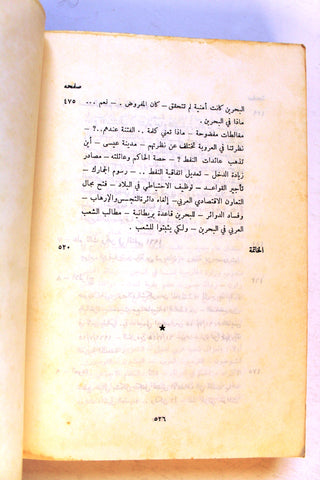 صفحه
البحرين كانت أمنية لم تتحقق – كان المفروض . – نعم ... ٤٧٥
ماذا في البحرين .
مغالطات مفضوحة – ماذا تعني كلمة .. الفتنة عندهم ..? –
نظرتنا في العروبة تختلف عن نظرتهم – مدينة عيسى – أين
تذهب عائدات النفط ? – حصة الحاكم وعائلته – مصادر
زيادة الدخل – تعديل اتفاقية النفط .. – رسوم الجمارك –
تأجير القواعد – توظيف الاحتياطي في البلاد – فتح مجال
التعاون الاقتصادي العربي – إلغاء دائرة التجسس والإرهاب –
وفساد الدوائر – للبحرين قاعدة بريطانية – مطالب الشعب
العربي في البحرين – ولكي يثبتوا للشعب .
الخاتمة ٥٢٠
*
٥٢٦